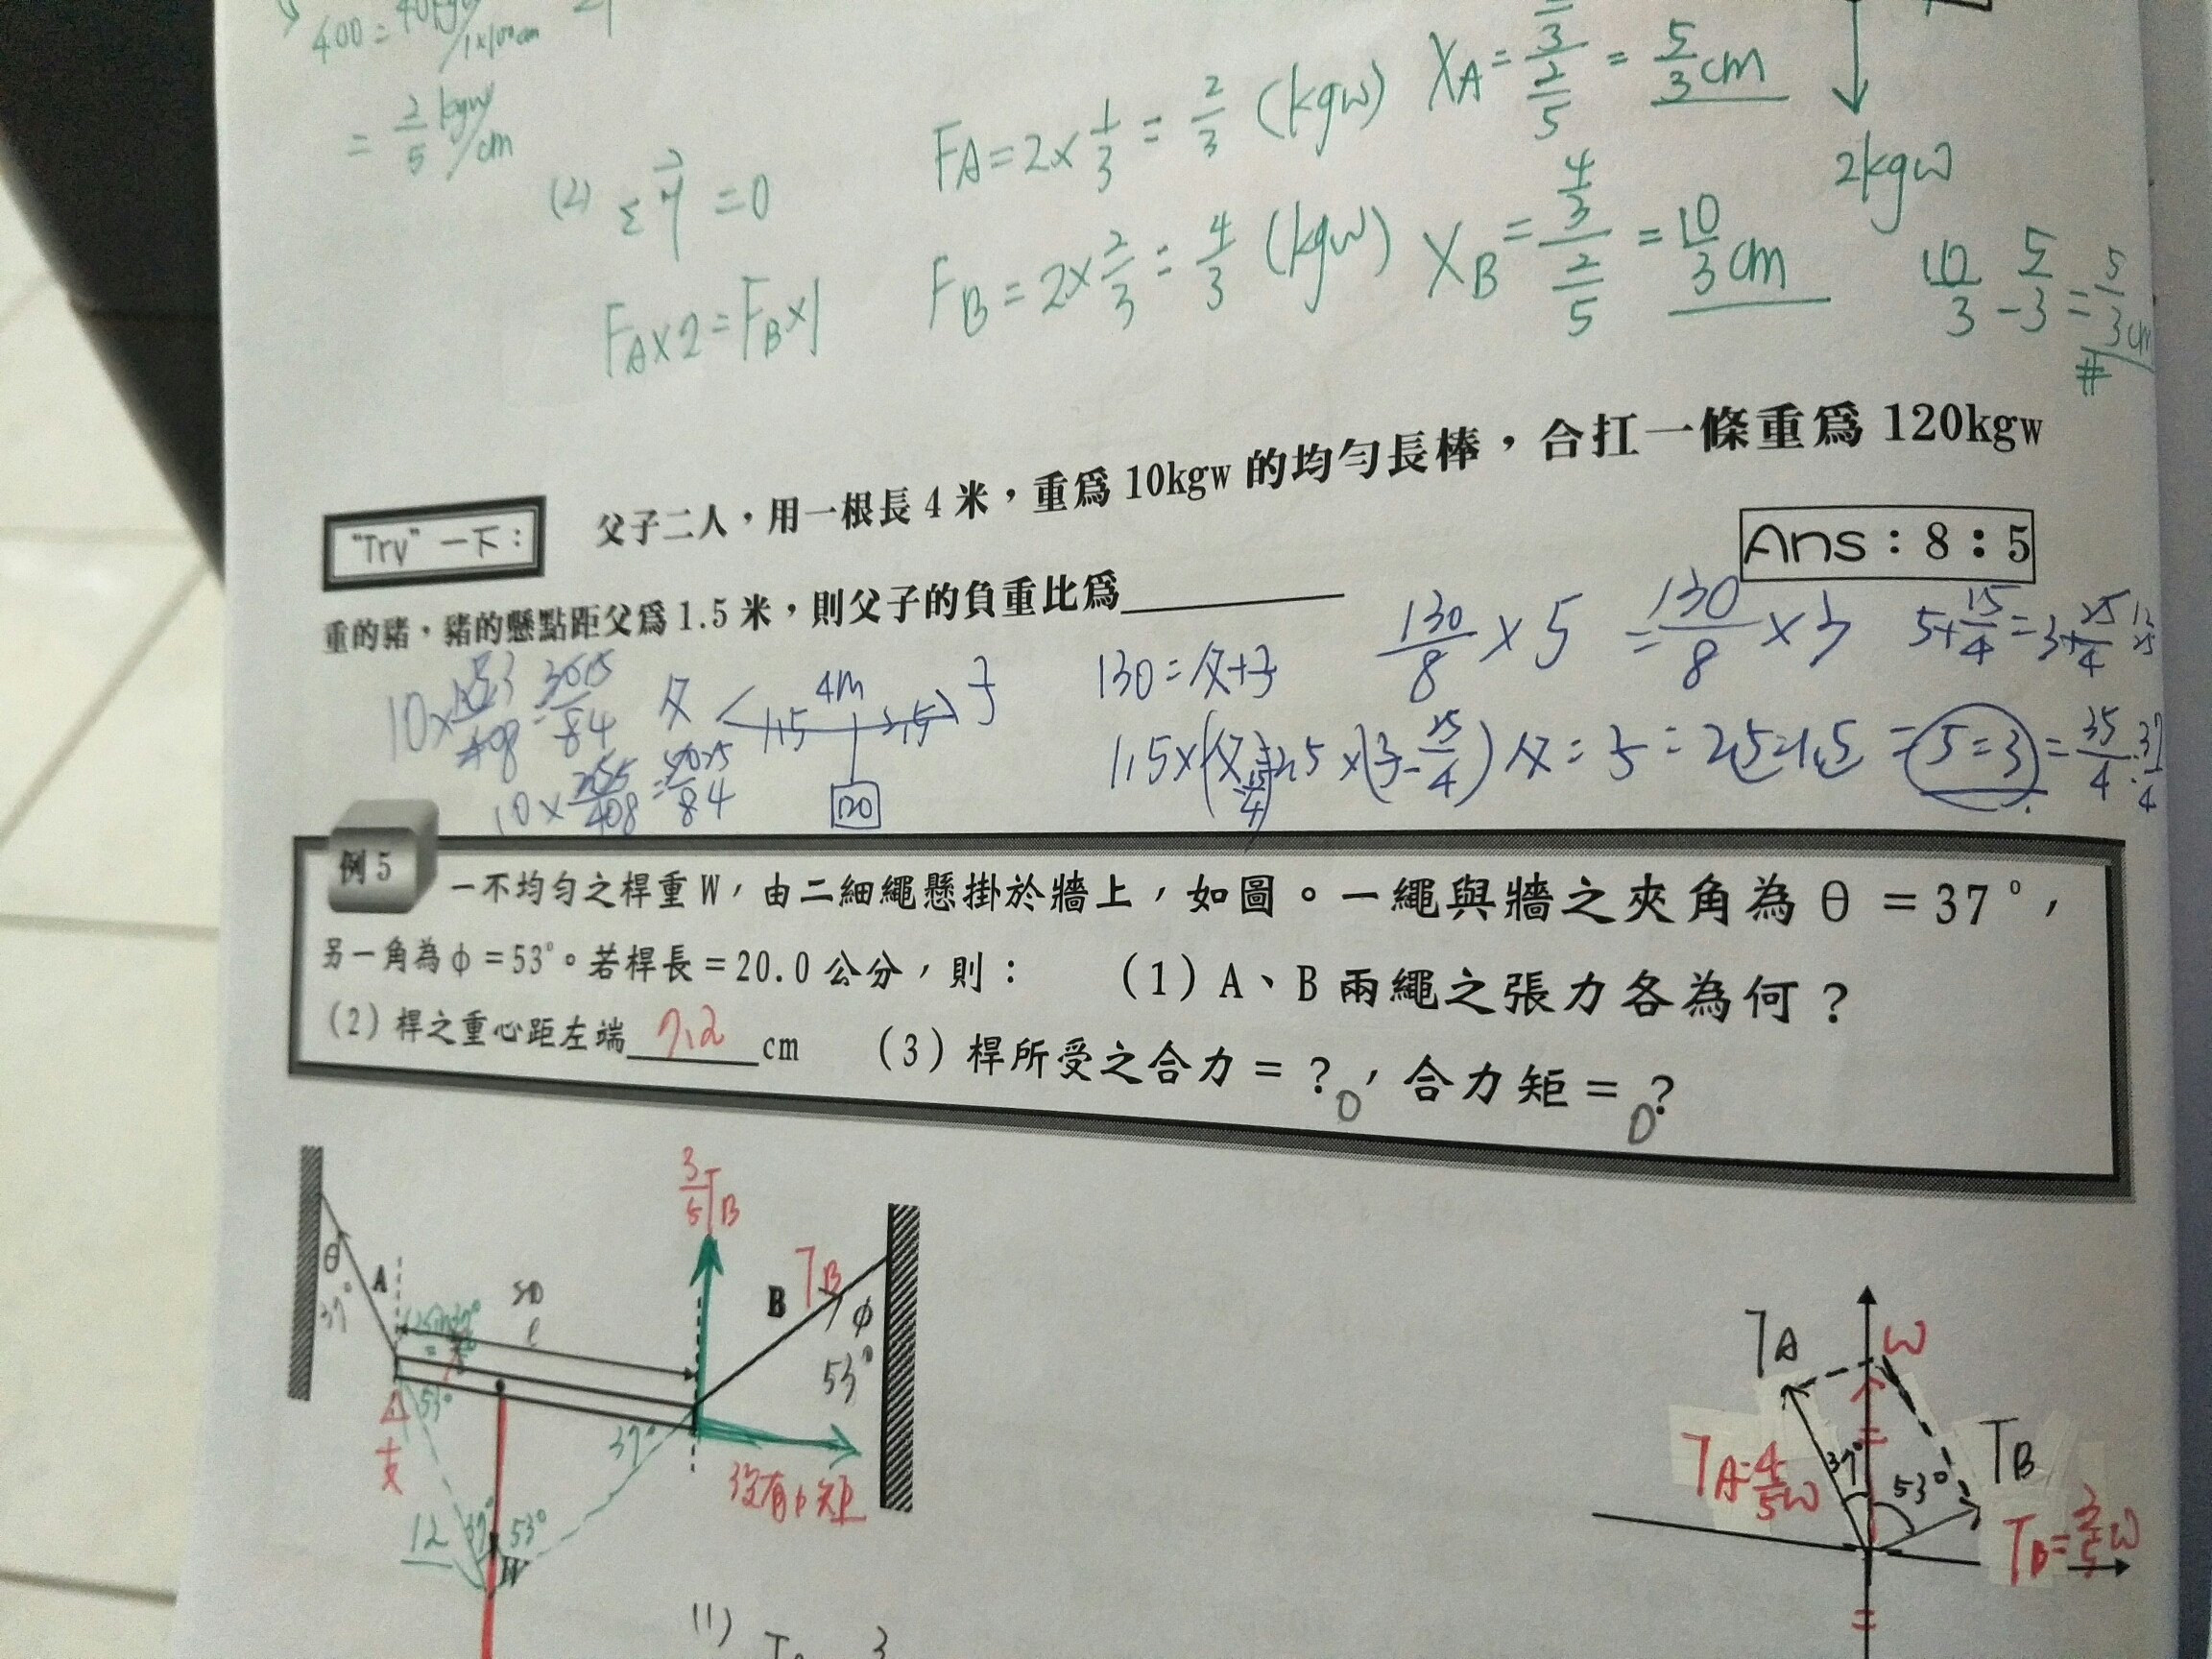 400 = 40kgw/1×100cm
= 2/5 kgw/cm
(2) Στ⃗ = 0
F_A×2 = F_B×1
F_A = 2×1/3 = 2/3 (kgw) X_A = (2/3)/(2/5) = 5/3 cm
2kgw
F_B = 2×2/3 = 4/3 (kgw) X_B = (4/3)/(2/5) = 10/3 cm
10/3 - 5/3 = 5/3 cm #
"Try"一下： 父子二人，用一根長4米，重爲10kgw的均勻長棒，合扛一條重爲120kgw
重的豬，豬的懸點距父爲1.5米，則父子的負重比爲
Ans：8：5
父 4m 子
1.5 2.5
120
130 = 父+子
130/8 × 5 = 130/8 × 3
5+15/4 = 3+25/4
父 = 子 = 2.5 = 1.5 = 5 = 3 = 35/4
例5 一不均勻之桿重W，由二細繩懸掛於牆上，如圖。一繩與牆之夾角為θ＝37°，
另一角為φ＝53°。若桿長＝20.0公分，則： （1）A、B兩繩之張力各為何？
（2）桿之重心距左端 7.2 cm （3）桿所受之合力＝？0，合力矩＝？0
3/5 T_B
θ
37°
A
20
ℓ
B
T_B
φ
53°
53°
支
37°
沒有力矩
12
37° 53°
W
T_A
W
T_A=4/5W
37°
53°
T_B
T_B=3/5W
(1)